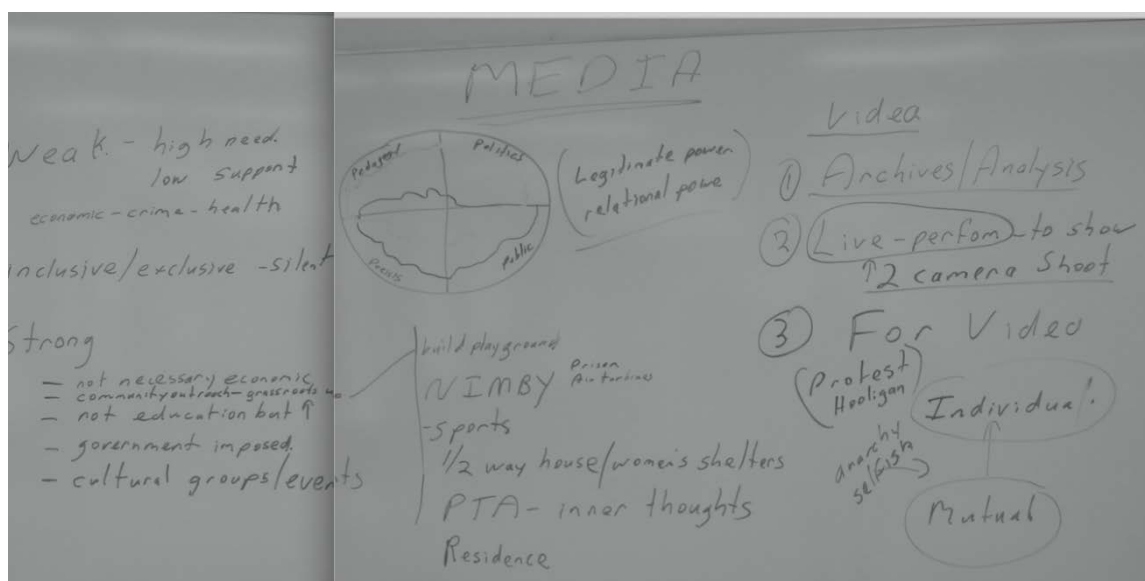 Weak - high need.
low support
economic - crime - health
inclusive/exclusive - silent
Strong
- not necessary economic
- community outreach - grassroots
- not education but ↑
- government imposed.
- cultural groups/events
MEDIA
Politics
Public
(Legitimate power
relational powe)
build playground
NIMBY Prison
- Sports
1/2 way house/women's shelters
PTA - inner thoughts
Residence
Videa
① Archives/Analysis
② Live-perfom - to show
↑ 2 camera Shoot
③ For Video
(Protest
Hooligan
anarchy
selfish
Individual.
Mutual